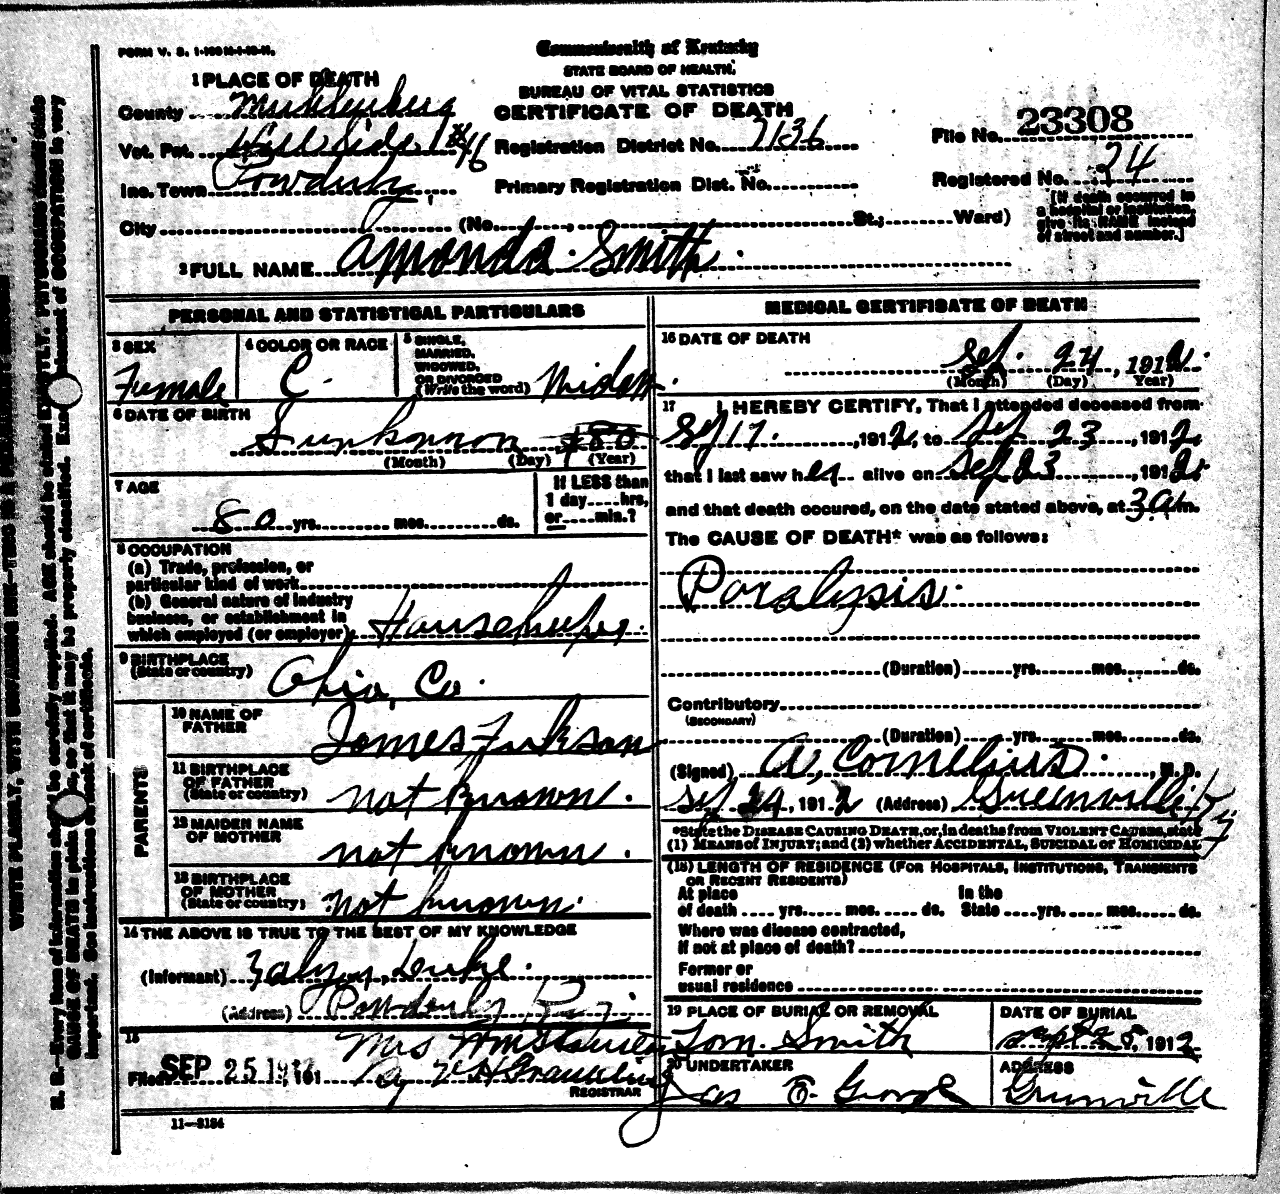 FORM V. S. 1-
Commonwealth of Kentucky
STATE BOARD OF HEALTH.
BUREAU OF VITAL STATISTICS
CERTIFICATE OF DEATH
1 PLACE OF DEATH
County Muhlenberg
Vot. Pct. Hill Side 1 #46
Inc. Town Powderly
City (No. St.; Ward)
Registration District No. 7136
Primary Registration Dist. No.
File No. 23308
Registered No. 24
[If death occurred in a hospital or institution, give its NAME instead of street and number.]
2 FULL NAME Amanda Smith
PERSONAL AND STATISTICAL PARTICULARS
3 SEX Female
4 COLOR OR RACE C.
5 SINGLE, MARRIED, WIDOWED, OR DIVORCED (Write the word) Widow
6 DATE OF BIRTH
(Month) (Day) (Year)
7 AGE 80 yrs. mos. ds.
If LESS than 1 day hrs, or min.?
8 OCCUPATION
(a) Trade, profession, or particular kind of work
(b) General nature of industry business, or establishment in which employed (or employer)
9 BIRTHPLACE (State or country) Ohio, Co.
PARENTS
10 NAME OF FATHER James
11 BIRTHPLACE OF FATHER (State or country) not known.
12 MAIDEN NAME OF MOTHER not known.
13 BIRTHPLACE OF MOTHER (State or country) not known.
14 THE ABOVE IS TRUE TO THE BEST OF MY KNOWLEDGE
(Informant)
(Address) Powderly
15
Filed SEP 25 1912, 191
Mrs Wm
By
REGISTRAR
11-3184
MEDICAL CERTIFICATE OF DEATH
16 DATE OF DEATH
Sep. 24, 1912.
(Month) (Day) Year)
17 I HEREBY CERTIFY, That I attended deceased from
Sep 17. , 1912, to Sep 23 , 1912
that I last saw her alive on Sep 23 , 1912
and that death occured, on the date stated above, at 3 a m.
The CAUSE OF DEATH* was as follows:
Paralysis.
(Duration) yrs. mos. ds.
Contributory
(SECONDARY)
(Duration) yrs. mos. ds.
(Signed) A, Cornelius. , M. D.
Sep 24, 1912 (Address) Greenville Ky
*State the DISEASE CAUSING DEATH, or, in deaths from VIOLENT CAUSES, state
(1) MEANS OF INJURY; and (2) whether ACCIDENTAL, SUICIDAL or HOMICIDAL
(18) LENGTH OF RESIDENCE (FOR HOSPITALS, INSTITUTIONS, TRANSIENTS
OR RECENT RESIDENTS)
At place of death yrs. mos. ds.
In the State yrs. mos. ds.
Where was disease contracted,
if not at place of death?
Former or
usual residence
19 PLACE OF BURIAL OR REMOVAL
Tom. Smith
DATE OF BURIAL
Sept 25, 1912
20 UNDERTAKER
Jas E.
ADDRESS
Greenville